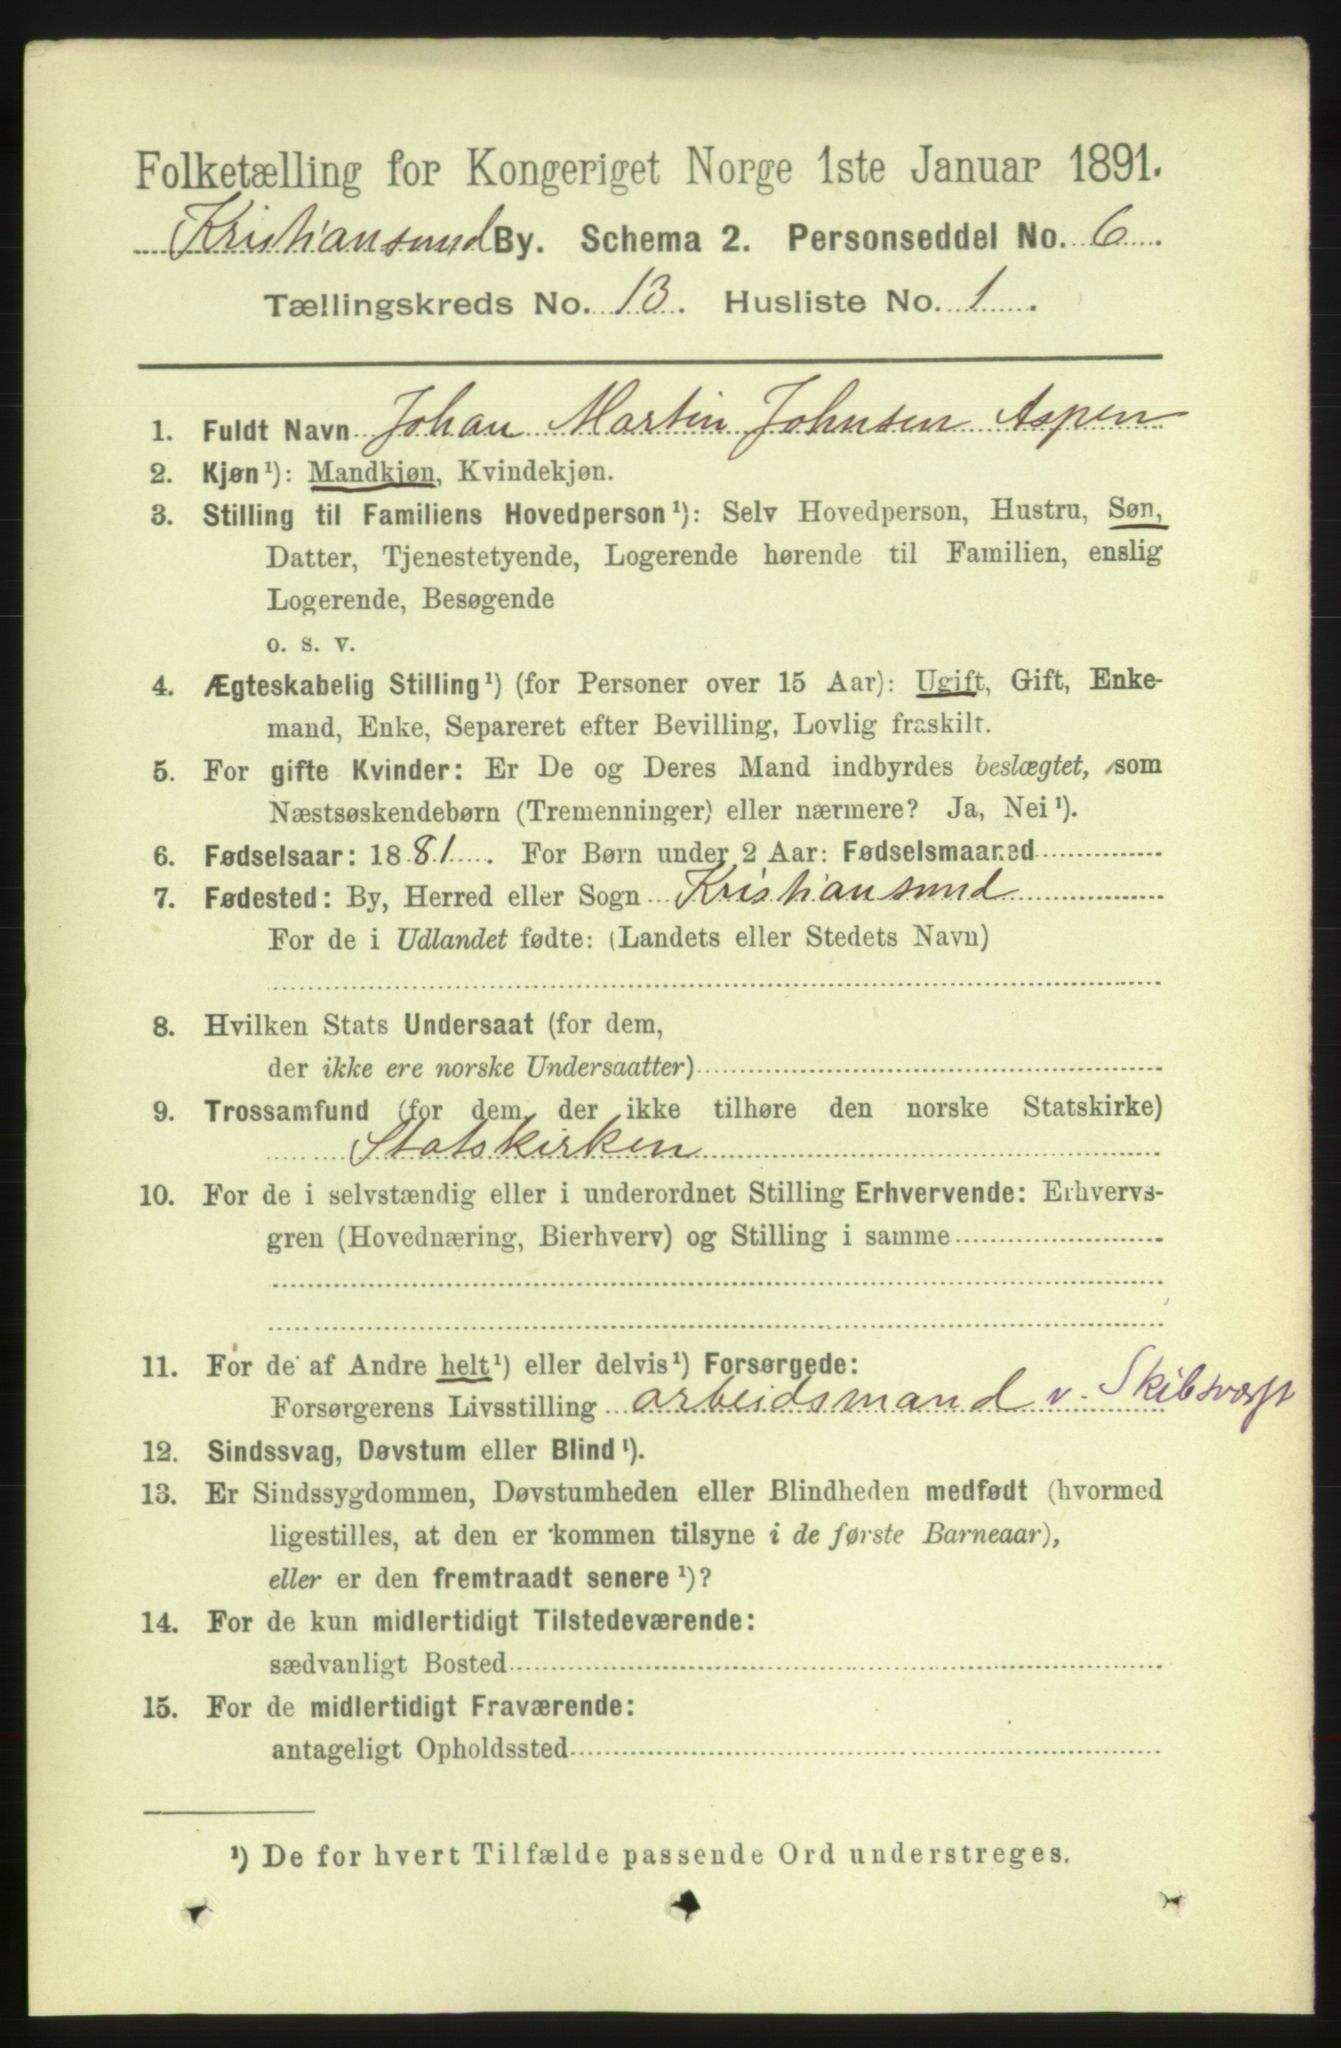 Folketælling for Kongeriget Norge 1ste Januar 1891.
Kristiansund By. Schema 2. Personseddel No. 6.
Tællingskreds No. 13. Husliste No. 1.
1. Fuldt Navn Johan Martin Johnsen Aspen
2. Kjøn¹): Mandkjøn, Kvindekjøn.
3. Stilling til Familiens Hovedperson¹): Selv Hovedperson, Hustru, Søn,
Datter, Tjenestetyende, Logerende hørende til Familien, enslig
Logerende, Besøgende
o. s. v.
4. Ægteskabelig Stilling¹) (for Personer over 15 Aar): Ugift, Gift, Enke-
mand, Enke, Separeret efter Bevilling, Lovlig fraskilt.
5. For gifte Kvinder: Er De og Deres Mand indbyrdes beslægtet, som
Næstsøskendebørn (Tremenninger) eller nærmere? Ja, Nei¹).
6. Fødselsaar: 1881. For Børn under 2 Aar: Fødselsmaaned
7. Fødested: By, Herred eller Sogn Kristiansund
For de i Udlandet fødte: (Landets eller Stedets Navn)
8. Hvilken Stats Undersaat (for dem,
der ikke ere norske Undersaatter)
9. Trossamfund (for dem, der ikke tilhøre den norske Statskirke)
Statskirken
10. For de i selvstændig eller i underordnet Stilling Erhvervende: Erhvervs-
gren (Hovednæring, Bierhverv) og Stilling i samme
11. For de af Andre helt¹) eller delvis¹) Forsørgede:
Forsørgerens Livsstilling arbeidsmand v. Skibsværft
12. Sindssvag, Døvstum eller Blind¹).
13. Er Sindssygdommen, Døvstumheden eller Blindheden medfødt (hvormed
ligestilles, at den er kommen tilsyne i de første Barneaar),
eller er den fremtraadt senere¹)?
14. For de kun midlertidigt Tilstedeværende:
sædvanligt Bosted
15. For de midlertidigt Fraværende:
antageligt Opholdssted
¹) De for hvert Tilfælde passende Ord understreges.